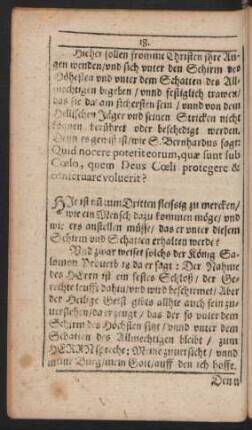 18.
Hieher sollen fromme Christen jhre Au-
gen wenden/vnd sich vnter den Schirm des
Höhesten vnd vnter dem Schatten des All-
mechtigen begeben / vnnd festiglich trawen/
das sie da am sichersten sein / vnnd von dem
Hellischen Jäger vnd seinen Stricken nicht
können berühret oder beschedigt werden.
Denn es gewiß ist/wie S. Bernhardus sagt:
Quid nocere poterit eorum, quæ sunt sub
Cœlo, quem Deus Cœli protegere &
conseruare voluerit?
HJe ist nu zum Dritten fleissig zu mercken/
wie ein Mensch dazu kommen möge/ vnd
wie ers anstellen müsse/ das er vnter diesem
Schirm vnd Schatten erhalten werde?
Vnd zwar weiset solchs der König Sa-
lomon Prouerb 18 da er sagt: Der Nahme
des HErrn ist ein festes Schloß/ der Ge-
rechte leufft dahin/ vnd wird beschirmet/ Aber
der Heilige Geist gibts allhie auch fein zu-
uerstehen/da er zeugt/ das der so vnter dem
Schirm des Höchsten sitzt / vnnd vnter dem
Schatten des Allmechtigen bleibt / zum
HERRN spreche: Meine zuuersicht/ vnnd
meine Burg/mein Gott/auff den ich hoffe.
Denn